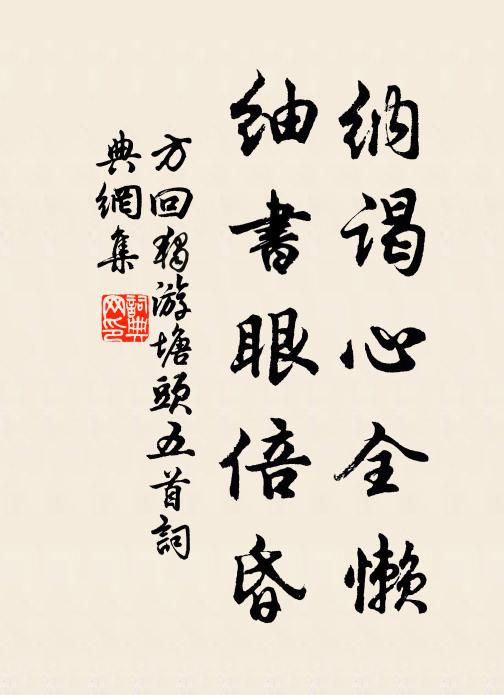 納謁心全懶
紬書眼倍昏
方回獨游塘頭五首詞
典網集
詞典網印